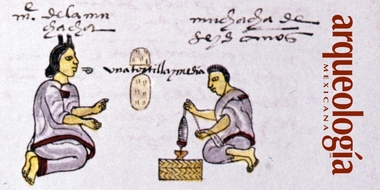 me. de la mu
chacha
muchacha de
seys años
una tortilla y media
arqueología
MEXICANA